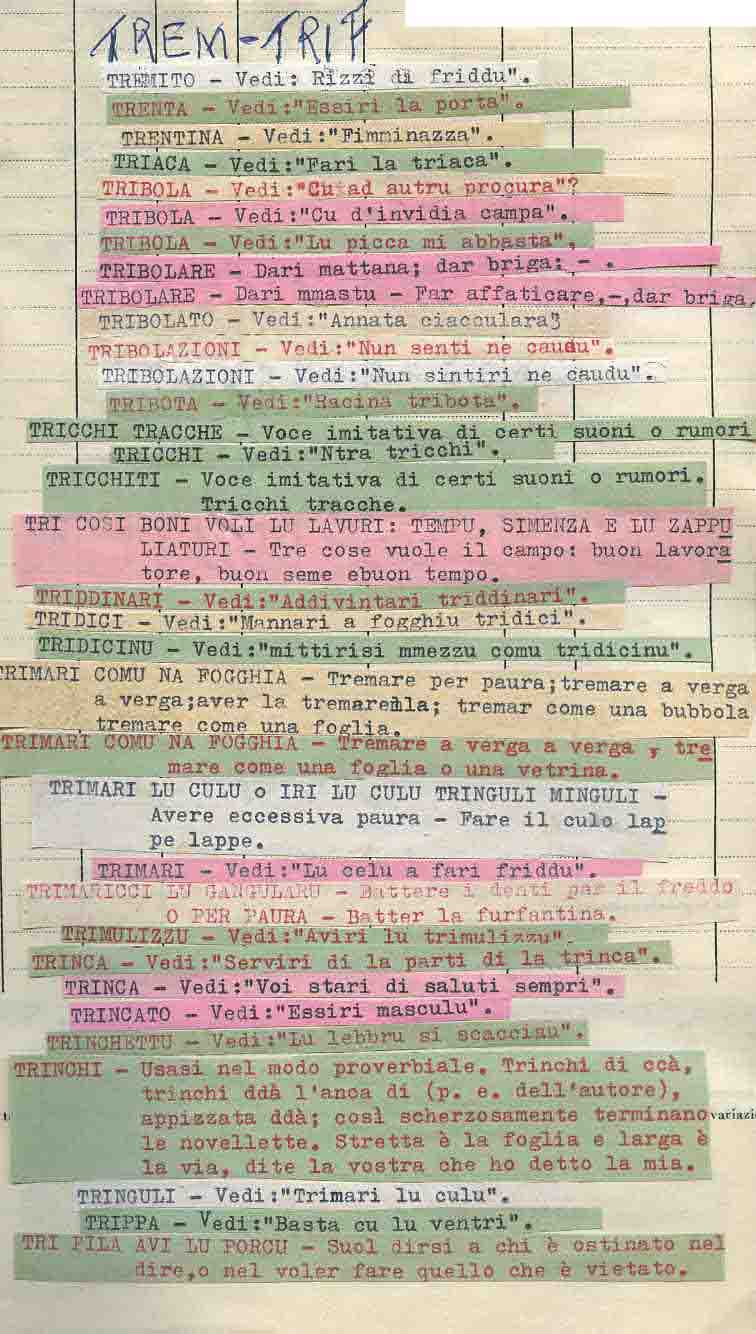 TREM-TRIF
TREMITO - Vedi: Rizzi di friddu".
TRENTA - Vedi:"Essiri la porta".
TRENTINA - Vedi:"Fimminazza".
TRIACA - Vedi:"Fari la triaca".
TRIBOLA - Vedi:"Cu ad autru procura"?
TRIBOLA - Vedi:"Cu d'invidia campa".
TRIBOLA - Vedi:"Lu picca mi abbasta",
TRIBOLARE - Dari mattana; dar briga: - .
TRIBOLARE - Dari mmastu - Far affaticare,-,dar briga,
TRIBOLATO - Vedi:"Annata ciacculara3
TRIBOLAZIONI - Vedi:"Nun senti ne caudu".
TRIBOLAZIONI - Vedi:"Nun sintiri ne caudu".
TRIBOTA - Vedi:"Racina tribota".
TRICCHI TRACCHE - Voce imitativa di certi suoni o rumori
TRICCHI - Vedi:"Ntra tricchi".
TRICCHITI - Voce imitativa di certi suoni o rumori.
Tricchi tracche.
TRI COSI BONI VOLI LU LAVURI: TEMPU, SIMENZA E LU ZAPPU
LIATURI - Tre cose vuole il campo: buon lavora
tore, buon seme ebuon tempo.
TRIDDINARI - Vedi:"Addivintari triddinari".
TRIDICI - Vedi:"Mannari a fogghiu tridici".
TRIDICINU - Vedi:"mittirisi mmezzu comu tridicinu".
TRIMARI COMU NA FOGGHIA - Tremare per paura;tremare a verga
a verga;aver la tremarella; tremar come una bubbola
tremare come una foglia.
TRIMARI COMU NA FOGGHIA - Tremare a verga a verga , tre
mare come una foglia o una vetrina.
TRIMARI LU CULU o IRI LU CULU TRINGULI MINGULI -
Avere eccessiva paura - Fare il culo lap
pe lappe.
TRIMARI - Vedi:"Lu celu a fari friddu".
TRIMARICCI LU GANGULARU - Battere i denti per il freddo
O PER PAURA - Batter la furfantina.
TRIMULIZZU - Vedi:"Aviri lu trimulizzu".
TRINCA - Vedi:"Serviri di la parti di la trinca".
TRINCA - Vedi:"Voi stari di saluti sempri".
TRINCATO - Vedi:"Essiri masculu".
TRINCHETTU - Vedi:"Lu lebbru si scacciau".
TRINCHI - Usasi nel modo proverbiale. Trinchi di ccà,
trinchi ddà l'anca di (p. e. dell'autore),
appizzata ddà; così scherzosamente terminano
variazi
le novellette. Stretta è la foglia e larga è
la via, dite la vostra che ho detto la mia.
TRINGULI - Vedi:"Trimari lu culu".
TRIPPA - Vedi:"Basta cu lu ventri".
TRI PILA AVI LU PORCU - Suol dirsi a chi è ostinato nel
dire,o nel voler fare quello che è vietato.